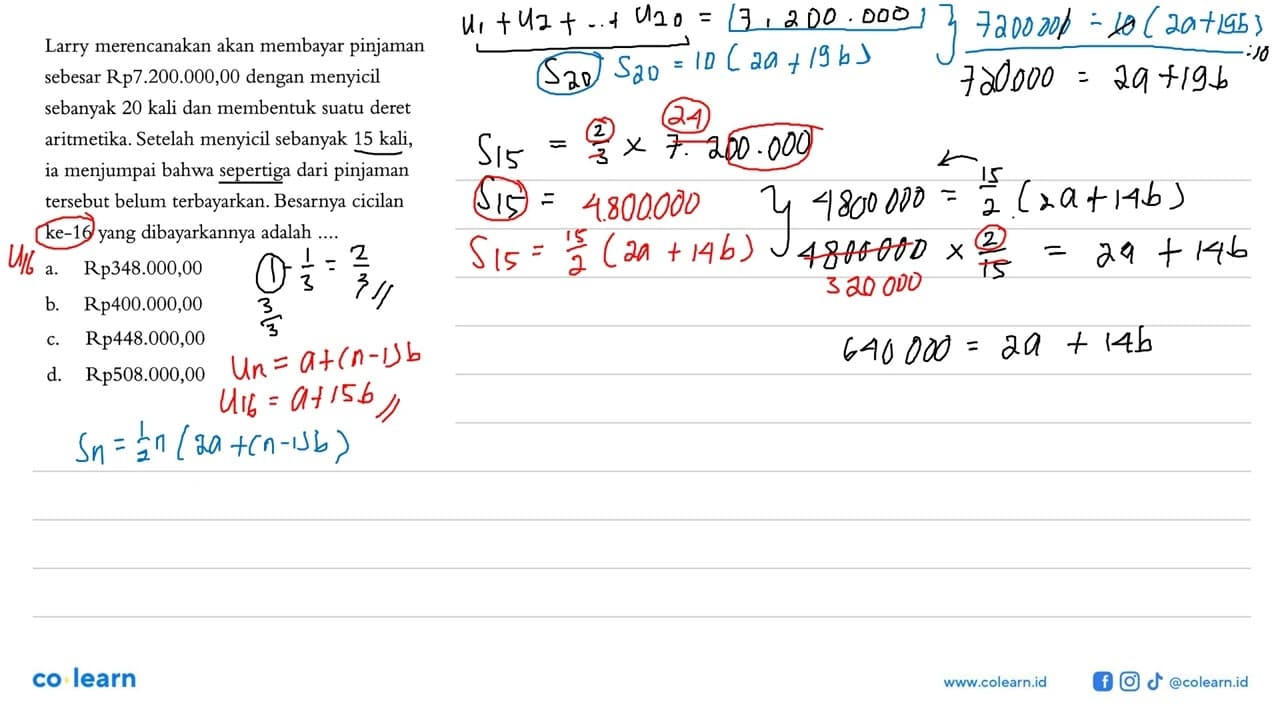 Larry merencanakan akan membayar pinjaman
sebesar Rp7.200.000,00 dengan menyicil
sebanyak 20 kali dan membentuk suatu deret
aritmetika. Setelah menyicil sebanyak 15 kali,
ia menjumpai bahwa sepertiga dari pinjaman
tersebut belum terbayarkan. Besarnya cicilan
ke-16 yang dibayarkannya adalah ....
U16
a. Rp348.000,00
b. Rp400.000,00
c. Rp448.000,00
d. Rp508.000,00
1 - 1/3 = 2/3 //
3/3
Un = a+(n-1)b
U16 = a+15b //
Sn = 1/2 n (2a+(n-1)b)
U1 + U2 + ..+ U20 = 7.200.000
S20 S20 = 10 (2a+19b)
7200000 = 10 (2a+19b)
:10
720000 = 2a+19b
S15 = 2/3 × 7.200.000
24
S15 = 4.800.000
S15 = 15/2 (2a + 14b)
4800 000 = 15/2 (2a+14b)
4800000 × 2/15 = 2a + 14b
320 000
640 000 = 2a + 14b
co learn
www.colearn.id
@colearn.id